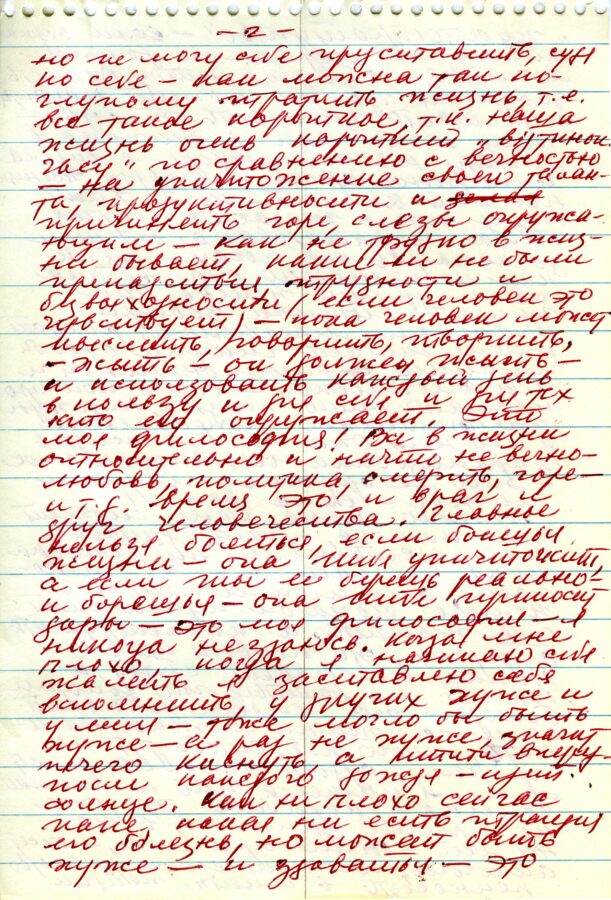 - 2 -
но не могу себе приставить, суд
по себе – как можна так по-
глупому тратить жизнь, т.е.
все такое короткое, т.к. наша
жизнь очень короткий „відтинок
часу" по сравнению с вечностью
– на уничтожение своего талан-
та, продуктивности и
причинеить горе, слезы окружа-
ющим – как не трудно в жиз-
ни бывает, какие ли не были
препядствия, трудности и
безвоходности, если человек это
чувствует) – пока человек может
мыслить, говорить, творить,
- жыть – он должен жыть –
и использовать каждый день
в пользу и для себя и для тех
кто его окружает. Это
моя философия! Все в жизни
относительно и ничто не вечно –
любовь, политика, смерть, горе –
и т.д. Время это и враг и
друг человечества. Главное
нельзя бояться, если боишься
жизни – она тебя уничтожит,
а если ты ее берешь реально –
и борешься – она тебе приносит
дары – это моя философия – я
никогда не здаюсь. Когда мне
плохо, когда я начинаю себя
жалеть я заставлею себя
вспомнить, у других хуже и
у меня – тоже могло бы быть
хуже – а раз не хуже, значит
нечего киснуть а итти вперед
после каждого дождя –
солнце. Как ни плохо сейчас
папе, какая ни есть трагедия
его болезнь, но может быть
хуже – и здаваться – это